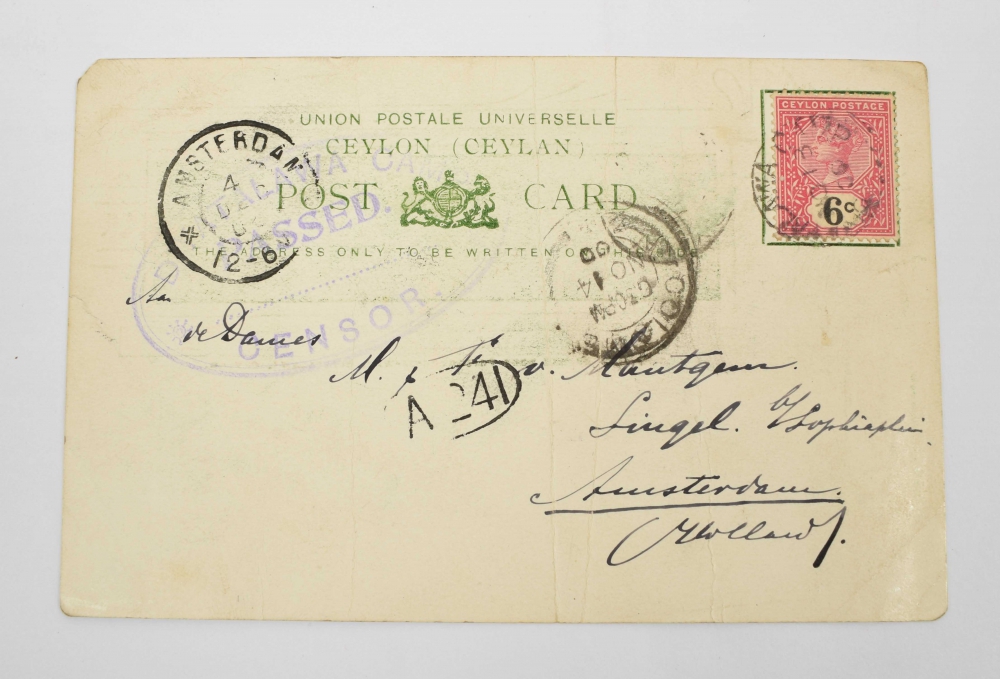 UNION POSTALE UNIVERSELLE
CEYLON (CEYLAN)
POST CARD
THE ADDRESS ONLY TO BE WRITTEN
CEYLON POSTAGE
6c
AMSTERDAM
4
DEC
12-6
PASSED.
CENSOR.
NO 14
A 241
Aan
de Dames
M. & F. v. Mantgem.
Singel. b/ Sophiaplein.
Amsterdam.
(Holland).